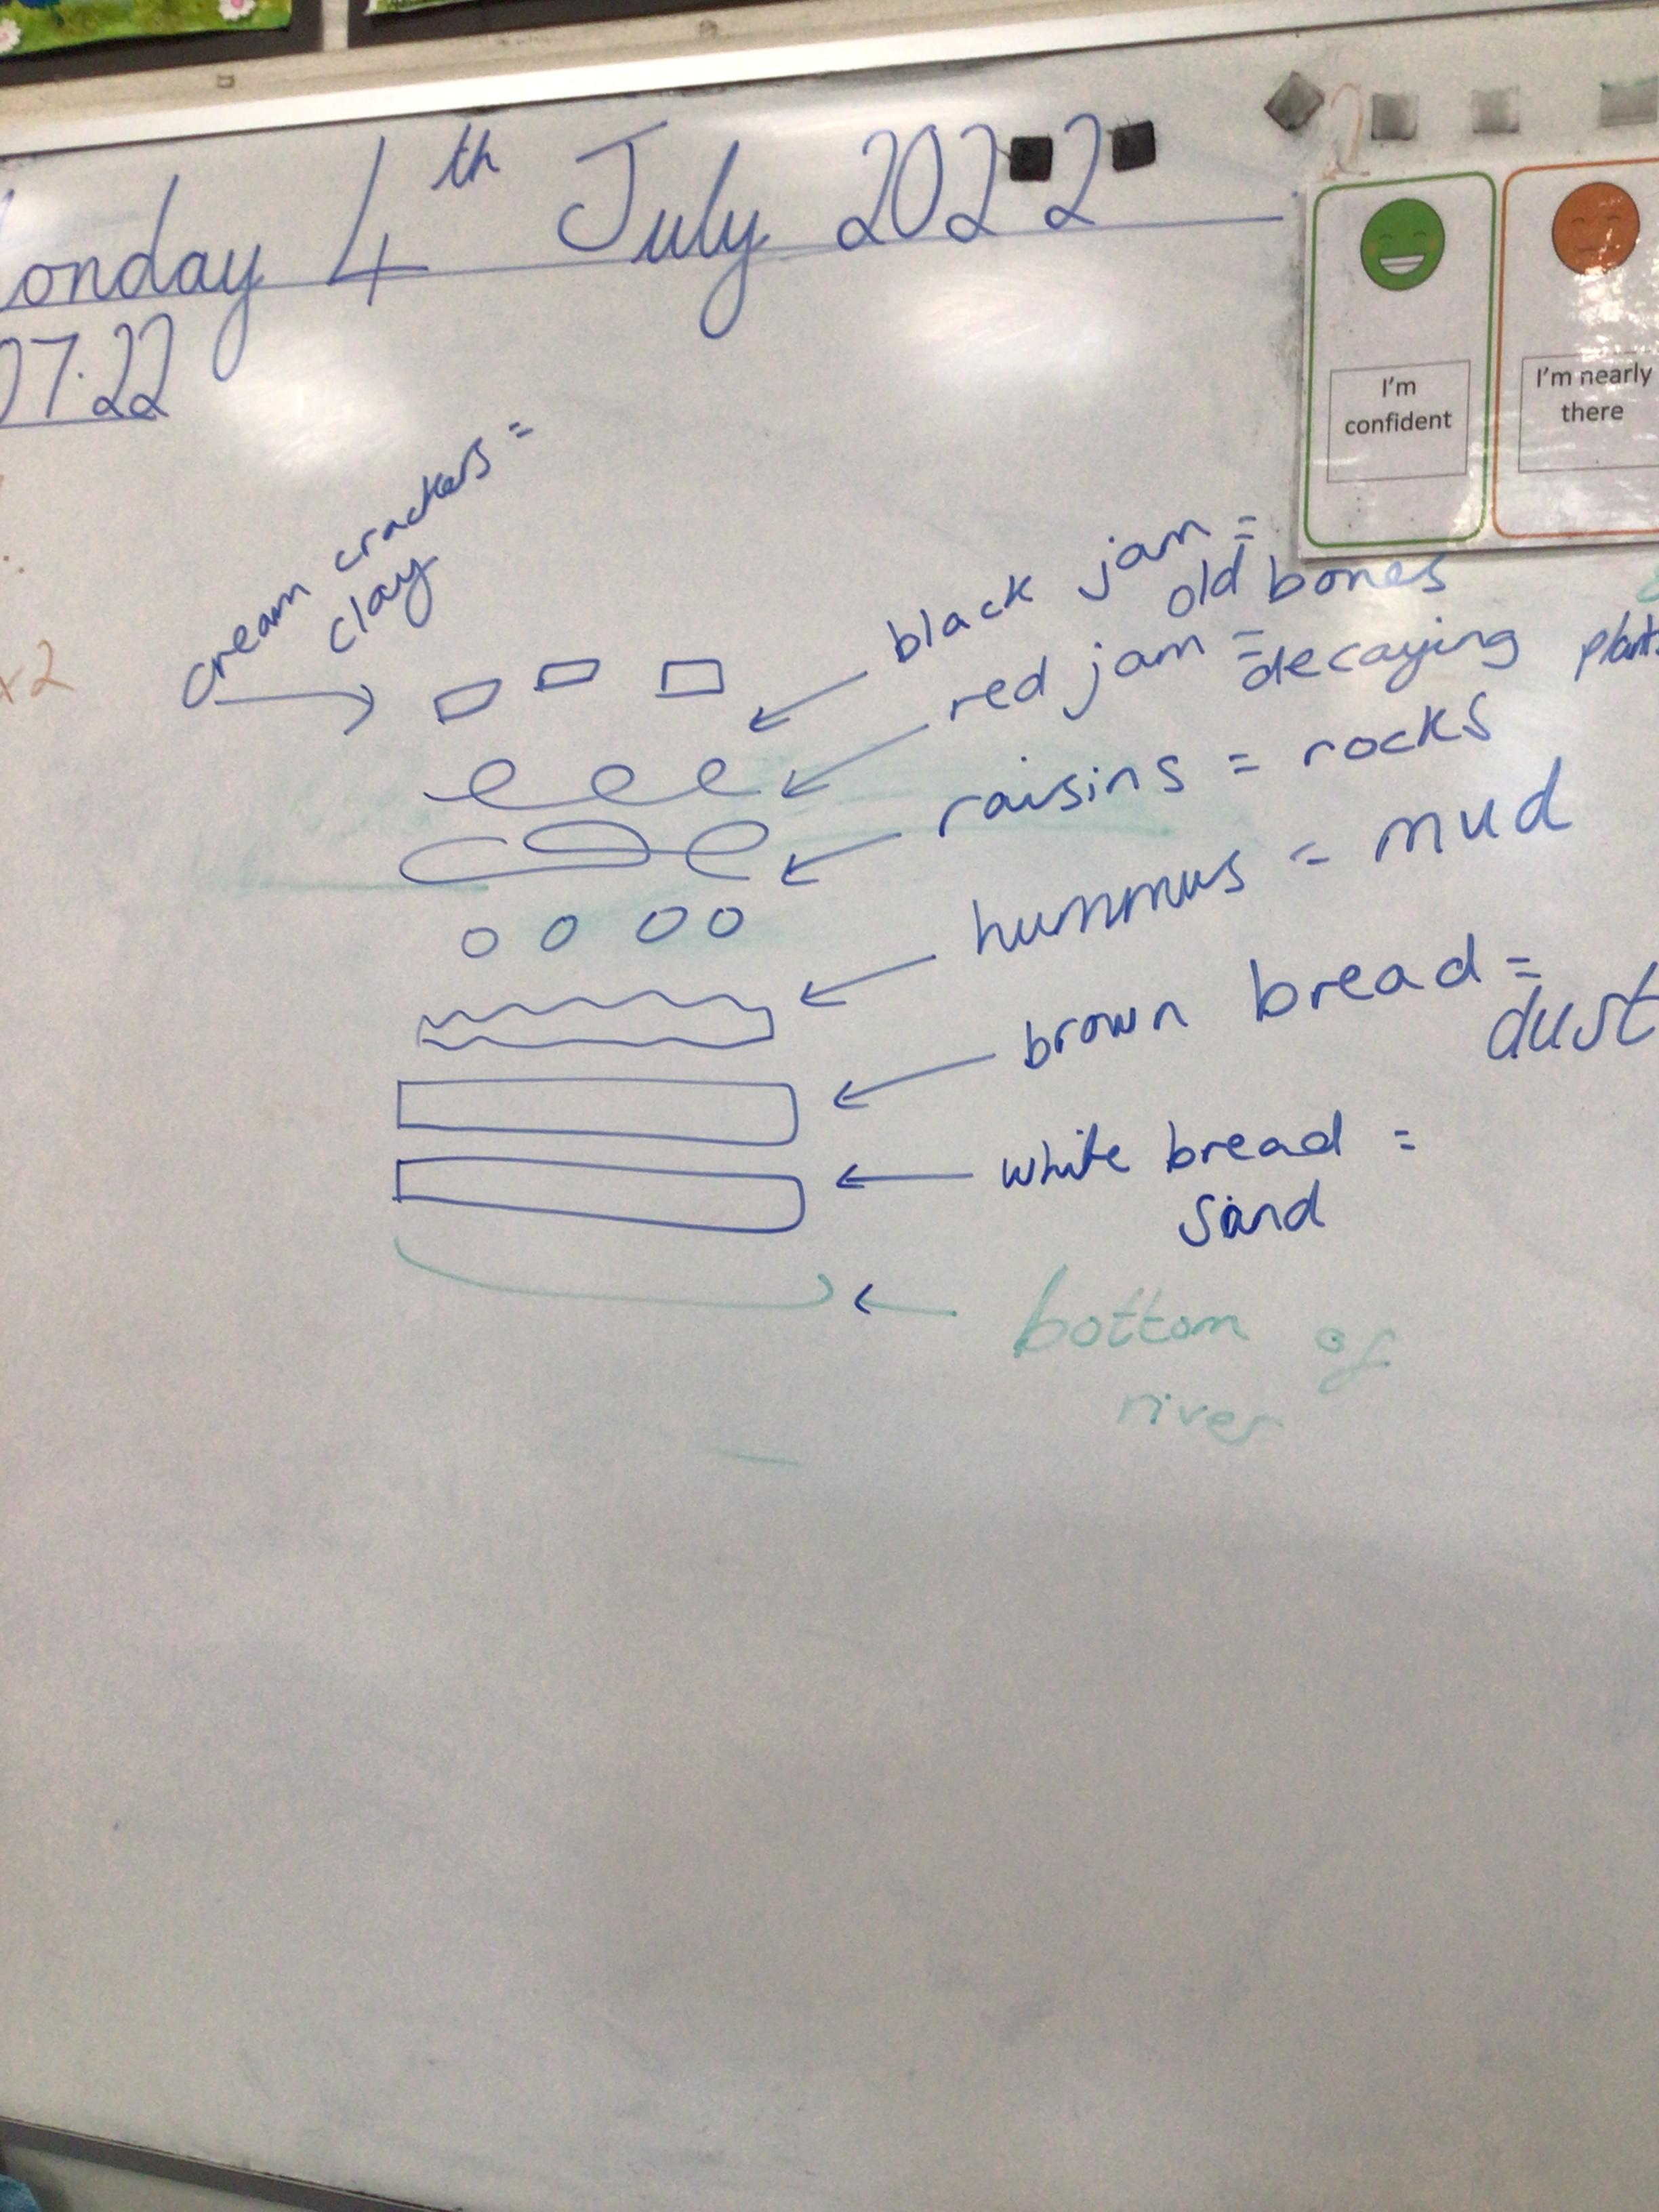 onday 4th July 2022
07.22
I'm
confident
I'm nearly
there
x2
cream crackers =
clay
black jam =
old bones
red jam =
decaying plants
raisins = rocks
hummus = mud
brown bread =
dust
white bread =
sand
bottom of
river